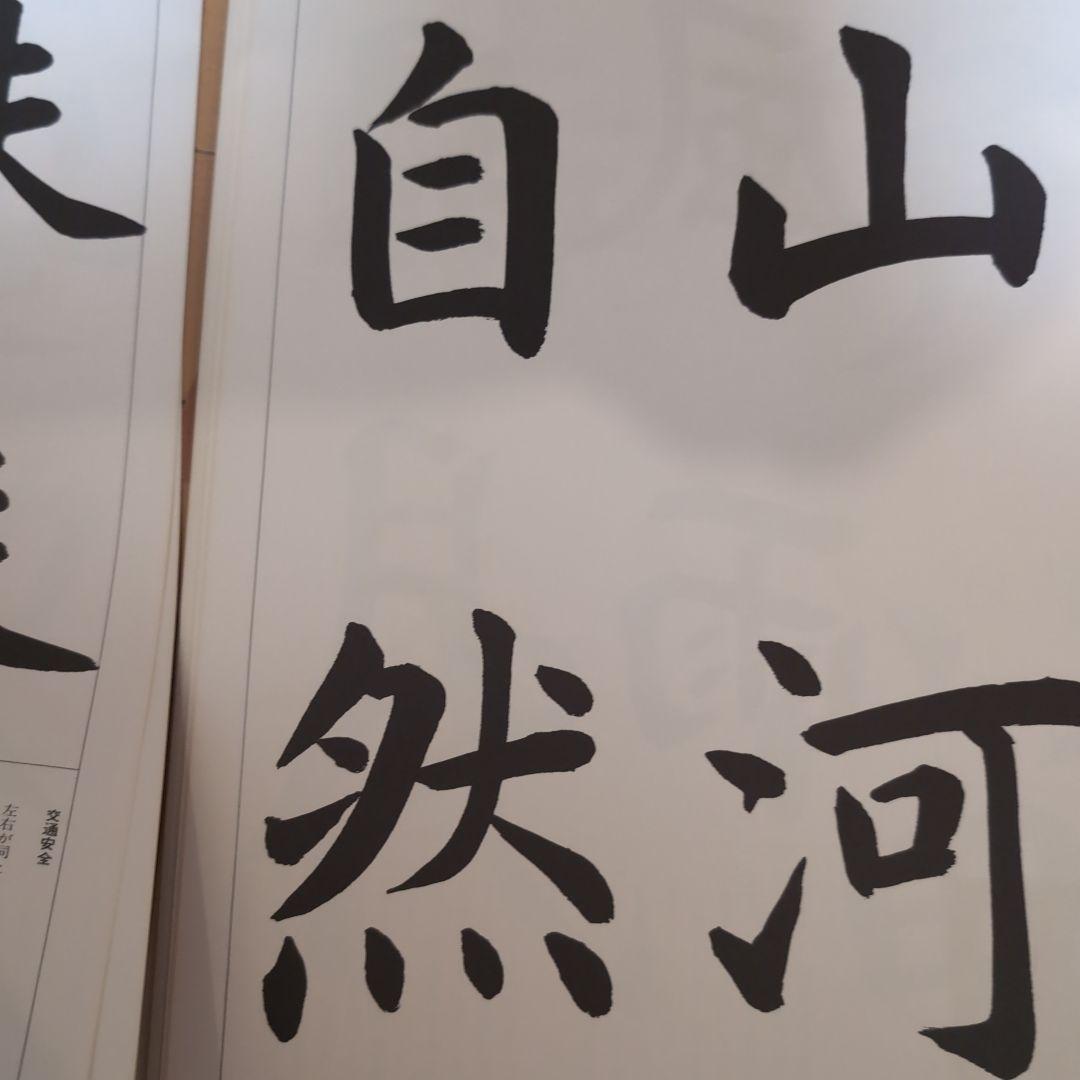 山河
自然
交通安全
左右が同